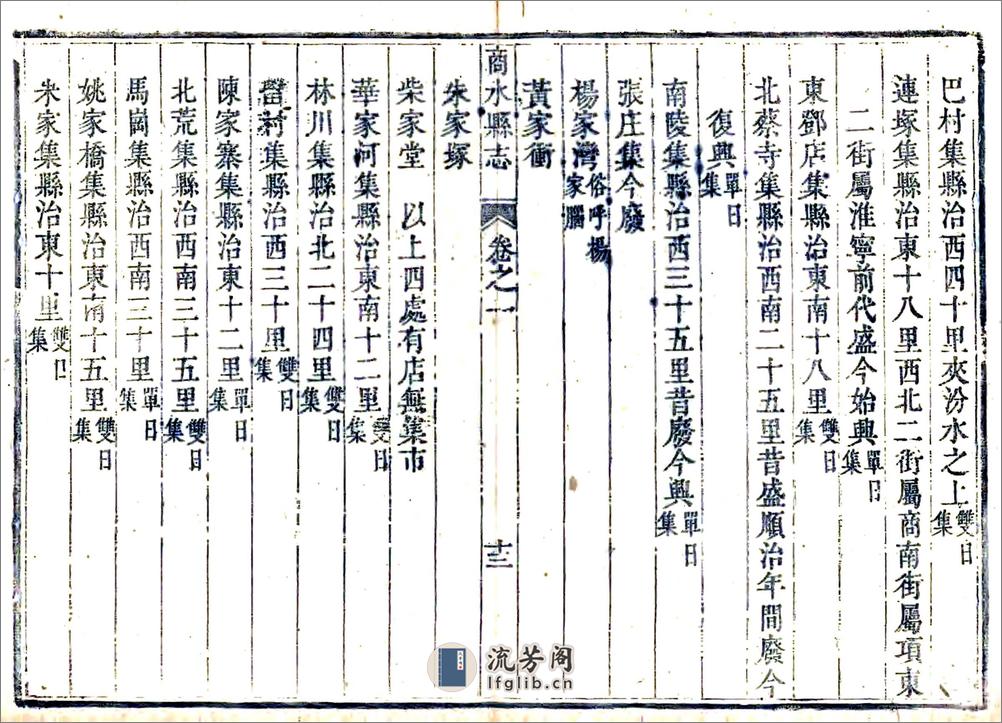 巴村集縣治西四十里夾汾水之上雙日集
連塚集縣治東十八里西北二街屬商南街屬項東
二街屬淮寧前代盛今始興單日集
東鄧店集縣治東南十八里雙日集
北蔡寺集縣治西南二十五里昔盛順治年間廢今
復興單日集
南陵集縣治西三十五里昔廢今興單日集
張庄集今廢
楊家灣俗呼楊家腦
黃家衝
商水縣志 卷之一 十三
朱家塚
柴家堂 以上四處有店無集市
華家河集縣治東南十二里雙日集
林川集縣治北二十四里雙日集
村集縣治西三十里雙日集
陳家寨集縣治東十二里單日集
北荒集縣治西南三十五里雙日集
馬崗集縣治西南三十里單日集
姚家橋集縣治東南十五里雙日集
朱家集縣治東十里雙日集
流芳阁
lfglib.cn